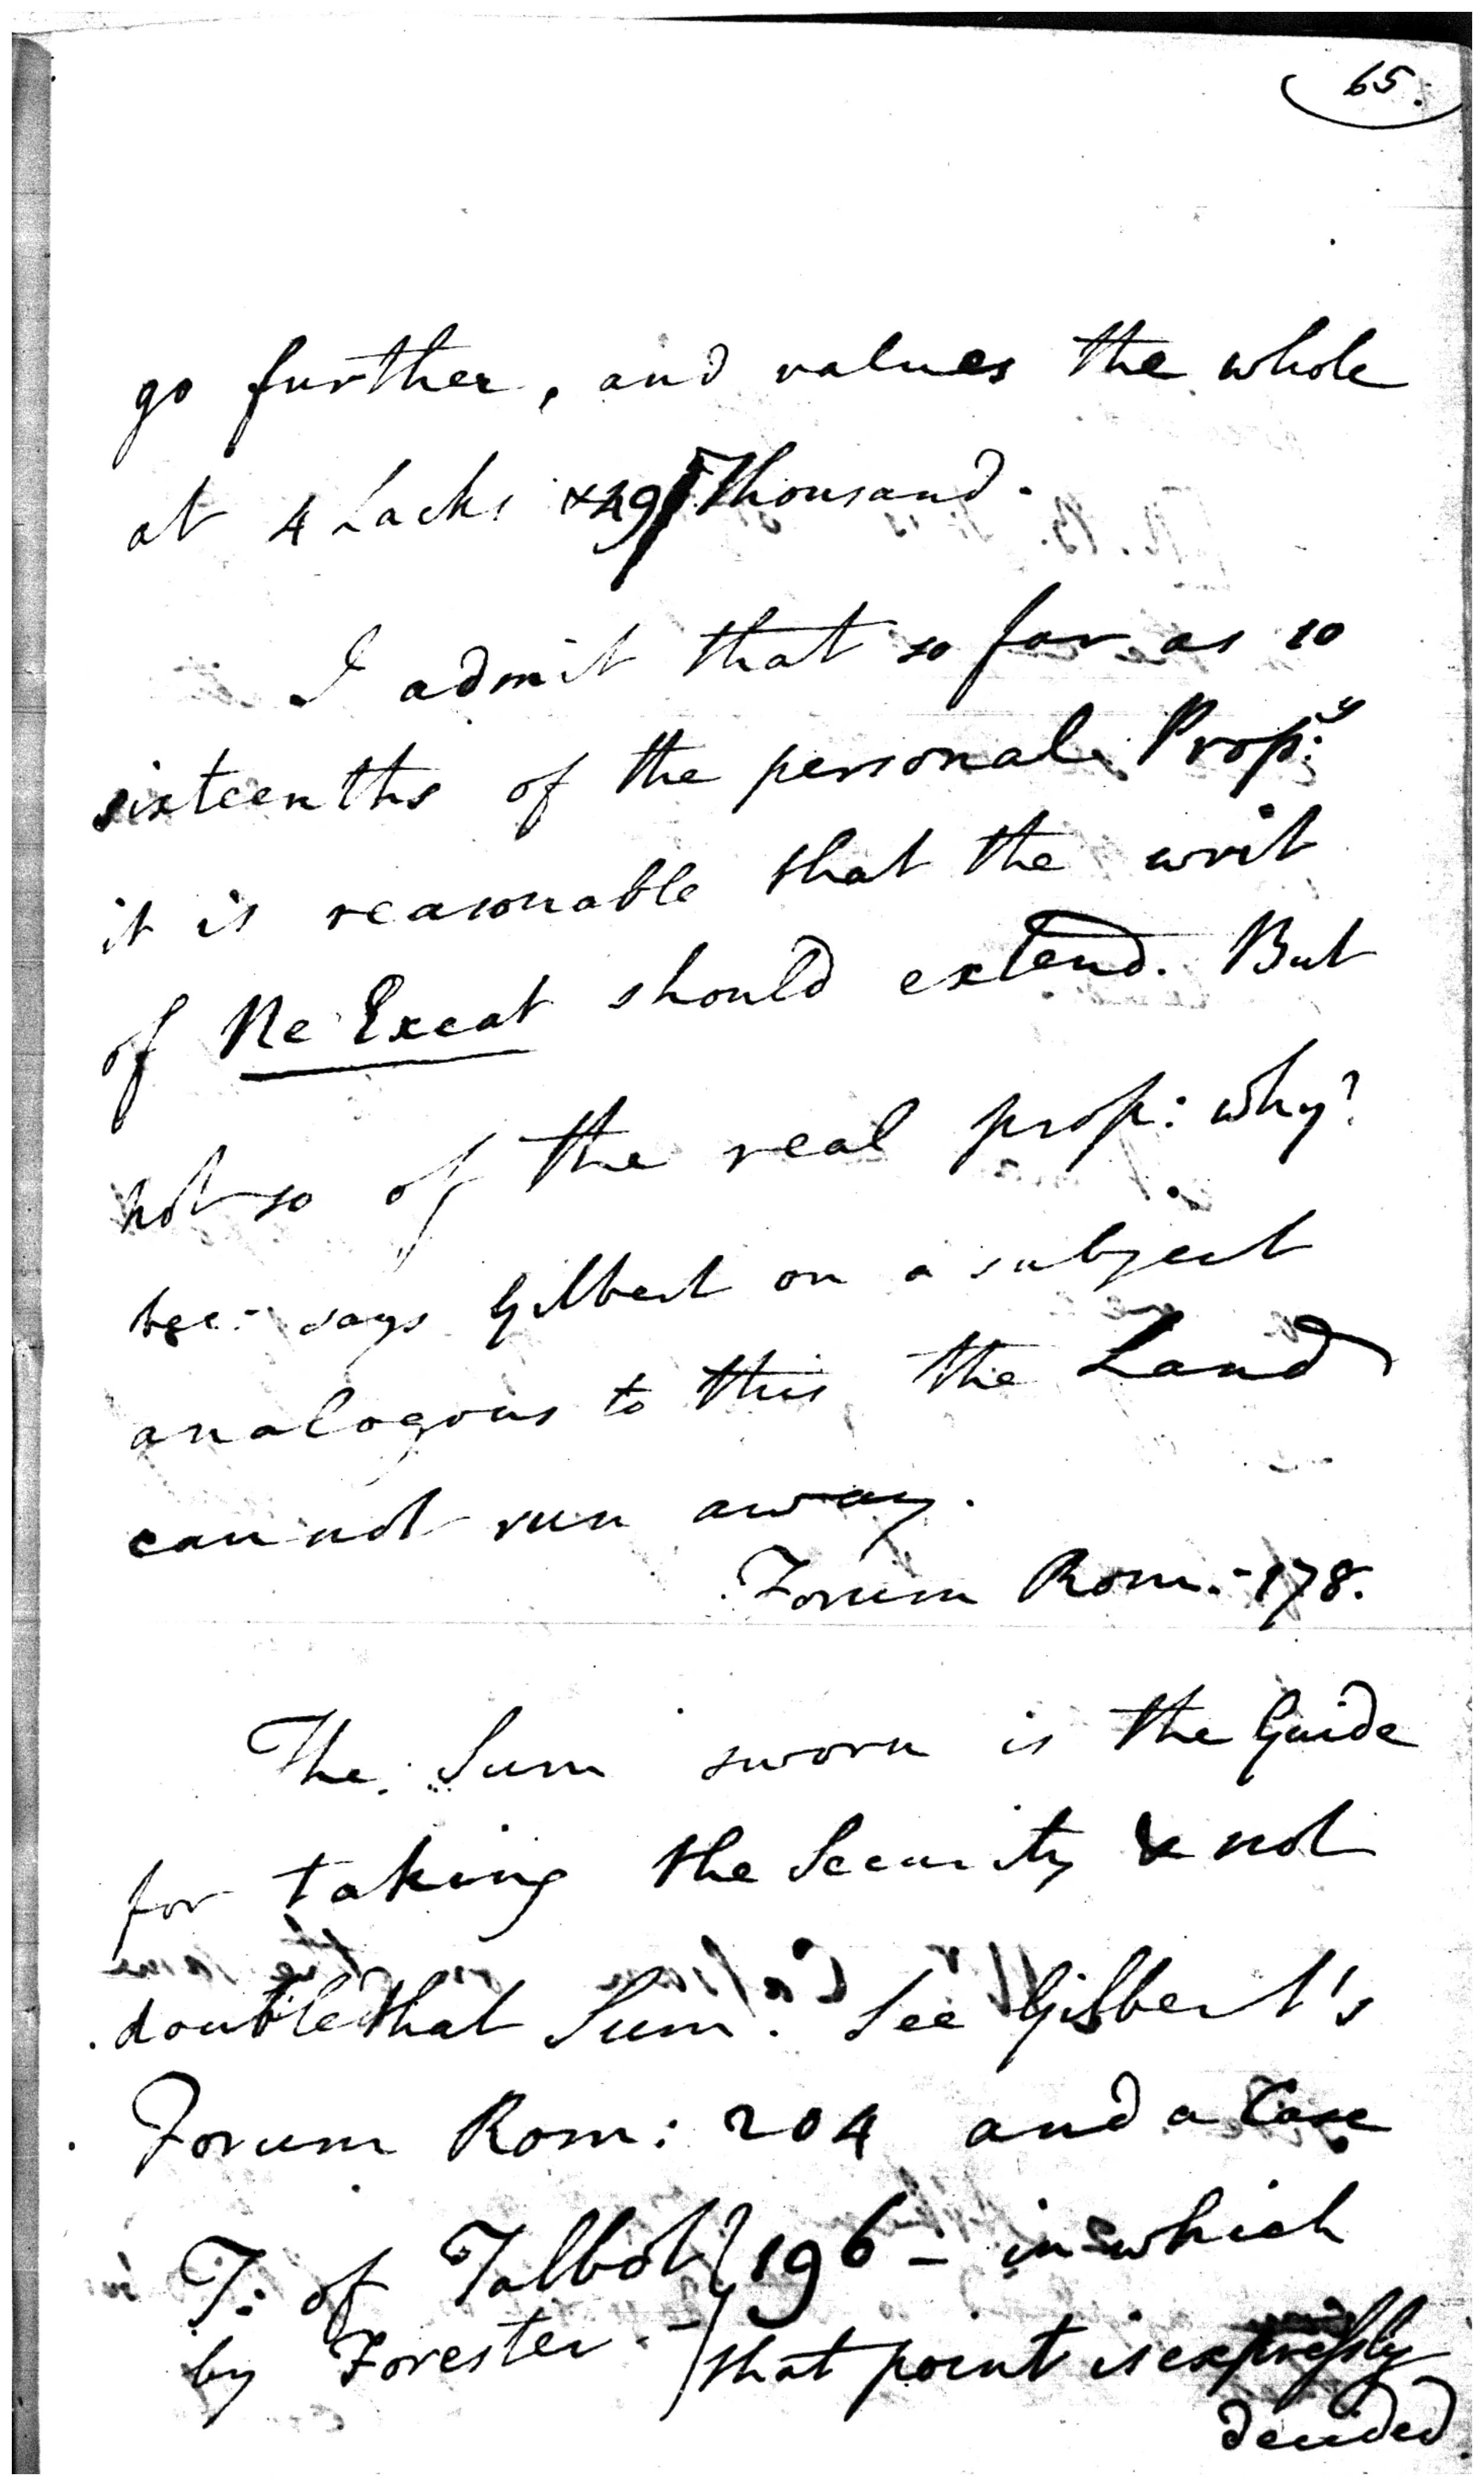 65.
go further, and values the whole
at 4 Lacks & 49 Thousand.
I admit that so far as 10
sixteenths of the personal Prop:ty
it is reasonable that the writ
of Ne Exeat should extend. But
not so of the real prop: why?
bec: says Gilbert on a subject
analogous to this, the Land
cannot run away.
Forum Rom:-178.
The Sum sworn is the Guide
for taking the Security & not
double that Sum. See Gilbert's
Forum Rom: 204 and a Case
T: of Talbot 196 - in which
by Forester - that point is expressly
decided.